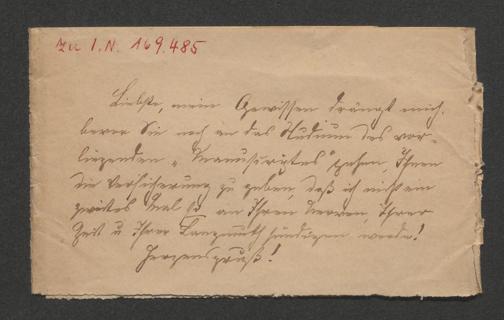 zu I.N. 169.485
Liebste, mein Gewissen drängt mich,
bevor Sie noch an das Studium des vor-
liegenden „Manuscriptes" gehen, Ihnen
die Versicherung zu geben, daß ich nicht ein
zweites Mal so an Ihren Nerven, Ihrer
Zeit u Ihrer Langmuth sündigen werde!
Herzensgruß!